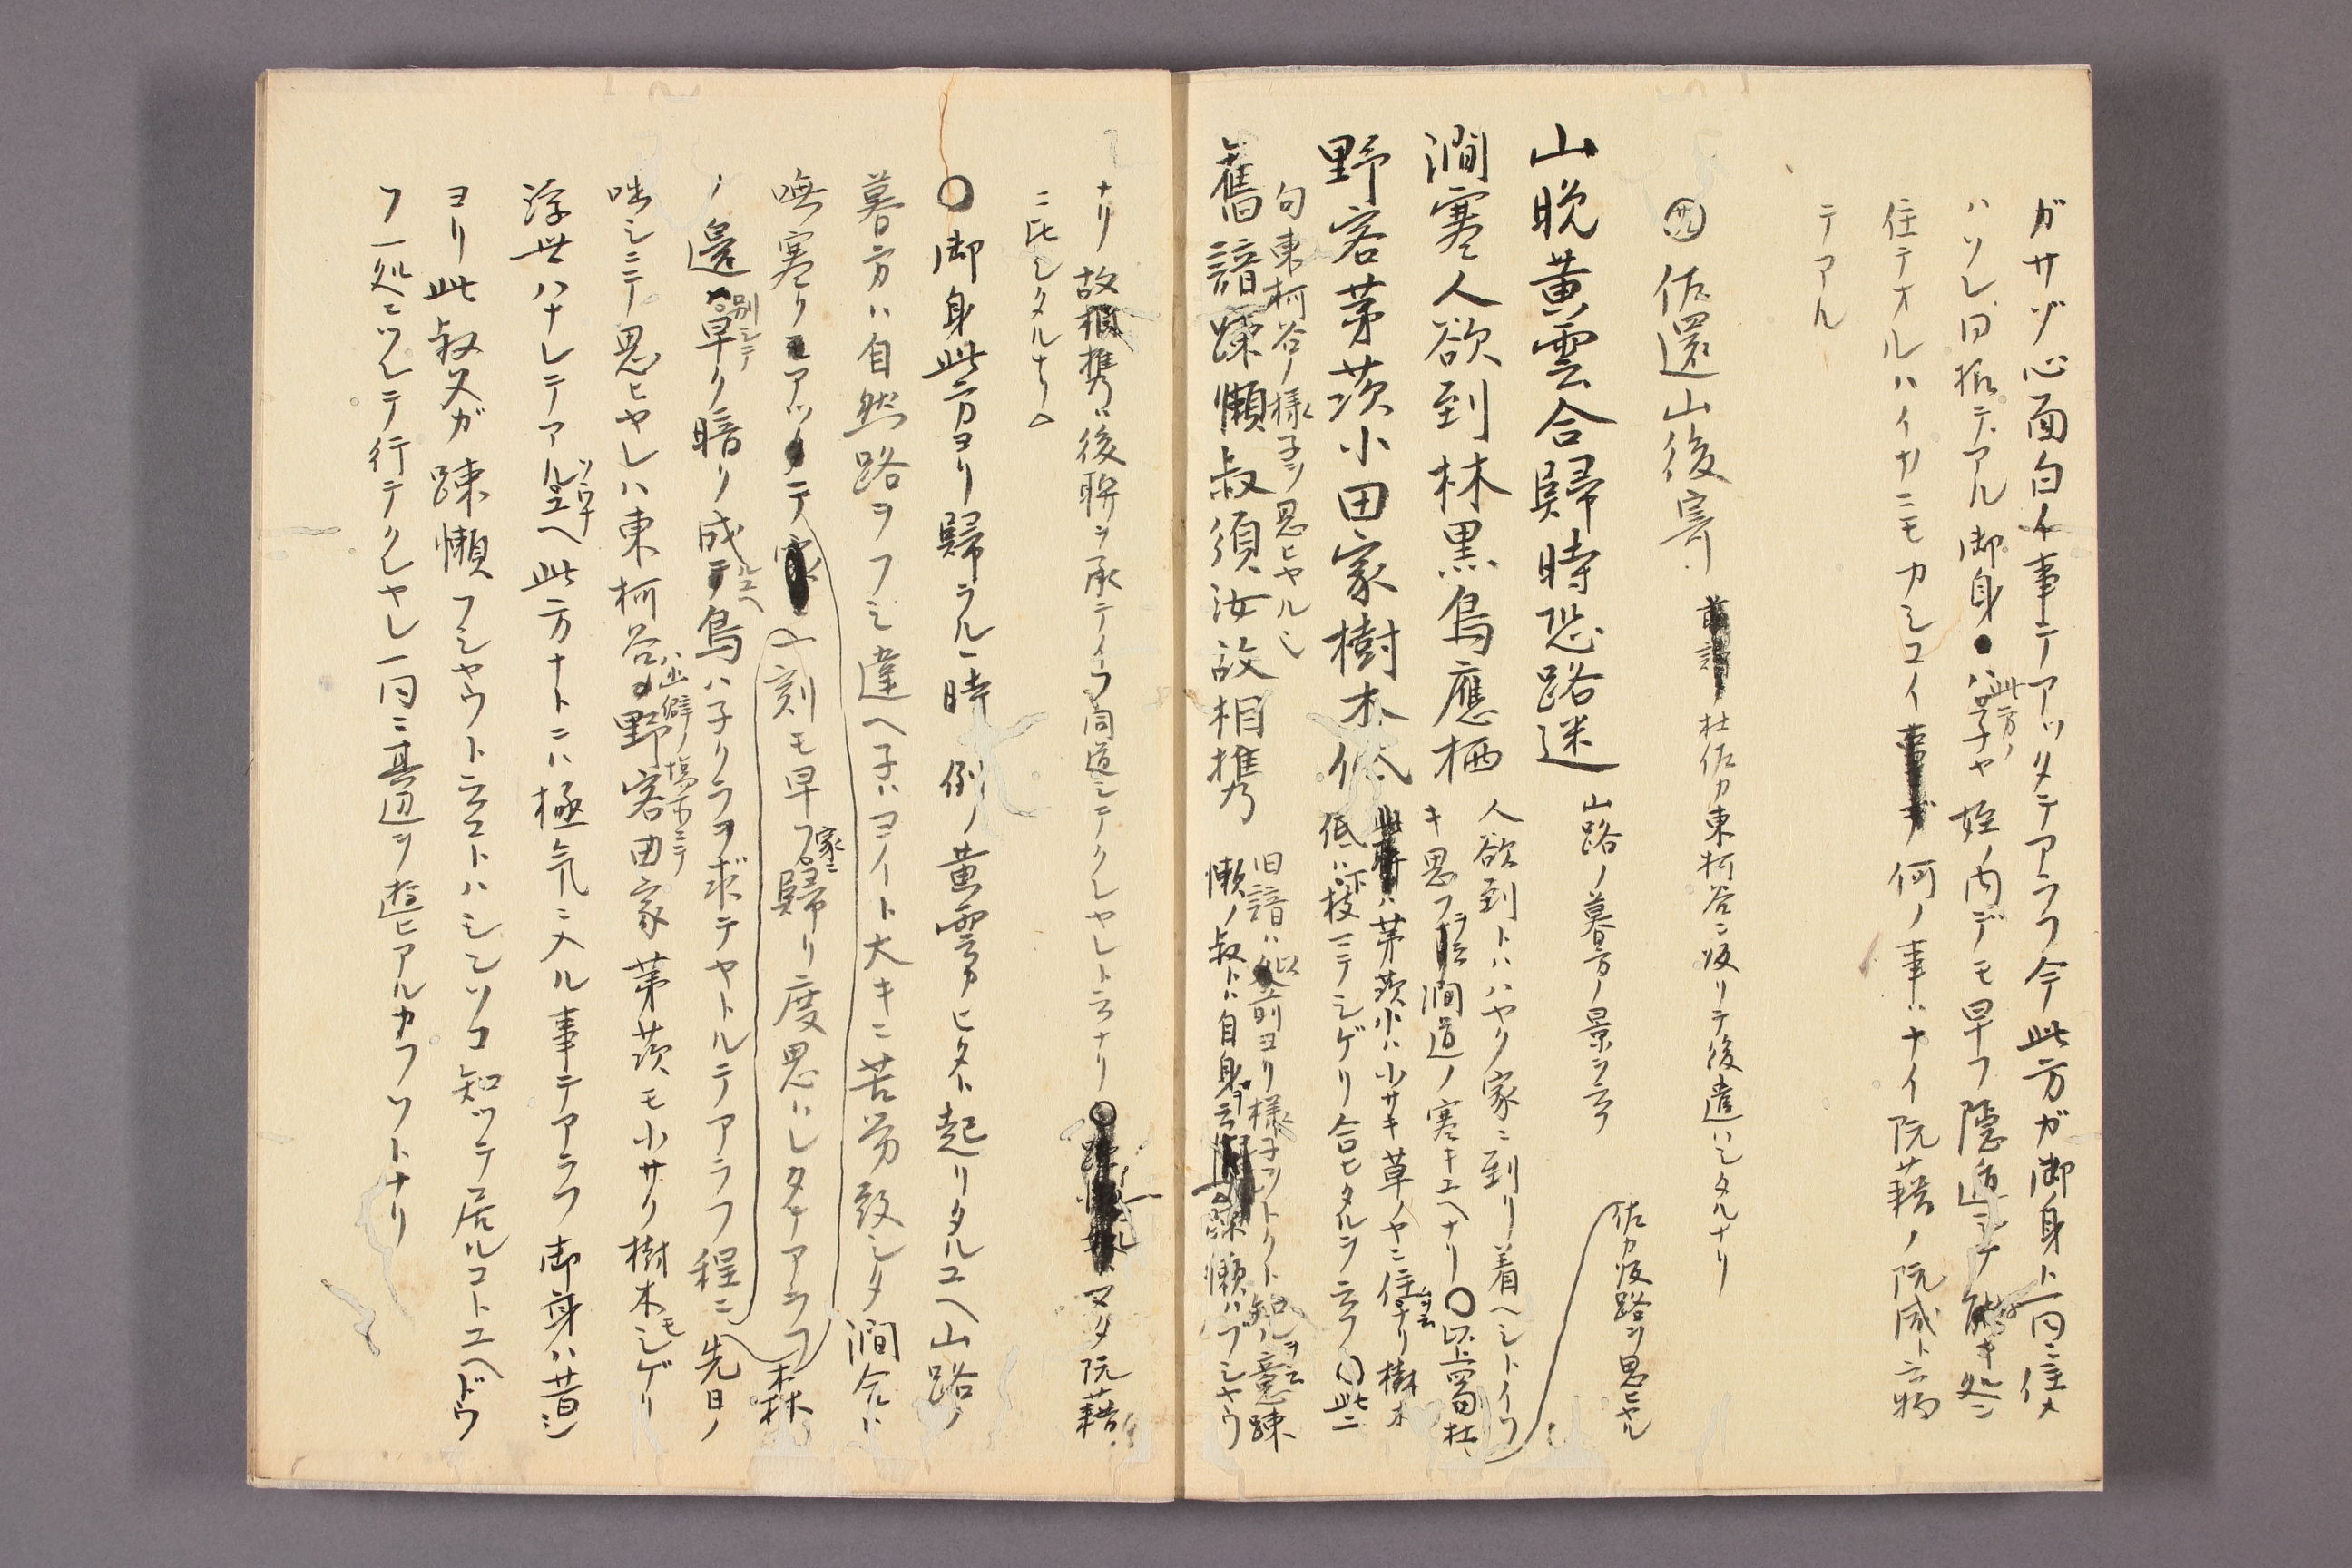 ガサゾ心面白イ事テアツタテアラフ今此方ガ御身ト一同ニ住メ
ハソレ同拆テアル御身ハ此方ノ子ヤ姪ノ内デモ早フ隠遁シテ
住テオルハイカニモカシコイ何ノ事ハナイ阮藉ノ阮咸ト云物
テアル
佐還山後寄 杜佐カ東柯谷ニ皈リテ後遣ハシタルナリ
山晩黄雲合歸時恐路迷 山路ノ暮方ノ景ヲ云フ 佐カ皈路ヲ思ヒヤル
澗寒人欲到林黒鳥應栖 人欲到トハハヤク家ニ到リ着ヘシトイフ
キ思フヲ云澗道ノ寒キユヘナリ〇以上四句杜
野客茅茨小田家樹木低 ハ茅茨小ハ小サキ草ノヤニ住ナリ樹木
低ハ下枝ニテシゲリ合ヒタルヲ云フ〇此二
句東柯谷ノ様子ヲ思ヒヤルシ
舊諳踈懶叔須汝故相携 旧諳ハ以前ヨリ様子ヲトクト知ルヲ云意踈
懶ノ叔トハ自身ヲ云踈懶ハブシヤウ
ナリ故相携ハ後聯ヲ承テイフ同道シテクレヤレト云ナリ〇マタ阮藉
ニ比シタルナリ
〇御身此方ヨリ歸ラル時例ノ黄雲カヒタト起リタルユヘ山路ノ
暮方ハ自然路ヲフミ違ヘ子ハヨイト大キニ苦労致シタ澗合ハ
嘸寒クモアツタテ一刻モ早フ家ニ歸リ度思ハレタテアラフ森
ノ邊別シテ早ク暗ク成ルユヘ鳥ハ子クラヲ求テヤトルテアラフ程ニ先日ノ
咄シニテ思ヒヤレハ東柯谷ハ山僻ノ塲所ニテ野客田家茅茨モ小サク樹木モシゲリ
浮世ハナレテアルソウナユヘ此方ナトニハ極気ニ入ル事テアラフ御身ハ昔シ
ヨリ此叔父ガ踈懶フシヤウト云コトハシンソコ知ツテ居ルコトユヘドウ
フ一処ニツレテ行テクレヤレ一同ニ其辺ヲ遊ヒアルカフソトナリ